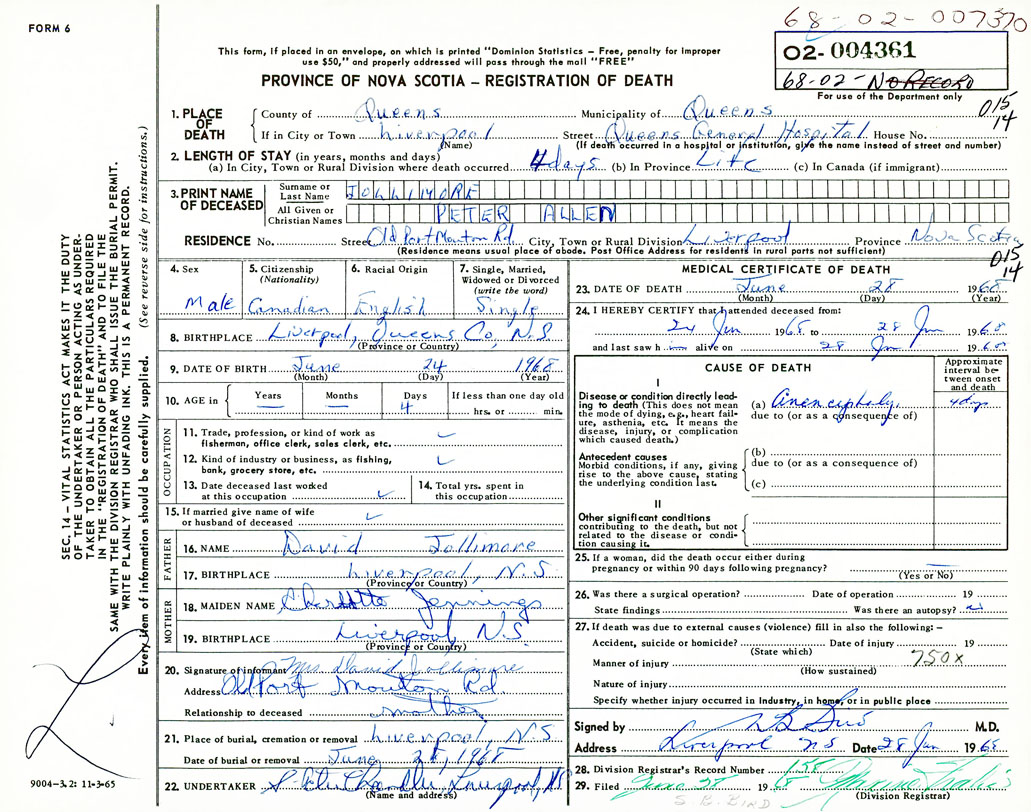 FORM 6
68-02-007370
This form, if placed in an envelope, on which is printed "Dominion Statistics – Free, penalty for improper
use $50," and properly addressed will pass through the mail "FREE"
02-004361
68-02- NO RECORD
For use of the Department only
PROVINCE OF NOVA SCOTIA – REGISTRATION OF DEATH
015
14
1. PLACE OF DEATH
County of Queens Municipality of Queens
If in City or Town Liverpool Street Queens General Hospital House No.
(Name) (If death occurred in a hospital or institution, give the name instead of street and number)
2. LENGTH OF STAY (in years, months and days)
(a) In City, Town or Rural Division where death occurred 4 days (b) In Province Life (c) In Canada (if immigrant)
3. PRINT NAME OF DECEASED
Surname or Last Name JOLLIMORE
All Given or Christian Names PETER ALLEN
RESIDENCE No. Street Old Port Mouton Rd. City, Town or Rural Division Liverpool Province Nova Scotia
(Residence means usual place of abode. Post Office Address for residents in rural parts not sufficient)
015
14
4. Sex Male
5. Citizenship (Nationality) Canadian
6. Racial Origin English
7. Single, Married, Widowed or Divorced (write the word) Single
8. BIRTHPLACE Liverpool, Queens Co, N.S
(Province or Country)
9. DATE OF BIRTH June 24 1968
(Month) (Day) (Year)
10. AGE in Years Months Days 4 If less than one day old hrs. or min.
OCCUPATION
11. Trade, profession, or kind of work as
fisherman, office clerk, sales clerk, etc.
12. Kind of industry or business, as fishing,
bank, grocery store, etc.
13. Date deceased last worked
at this occupation
14. Total yrs. spent in
this occupation
15. If married give name of wife
or husband of deceased
FATHER
16. NAME David Jollimore
17. BIRTHPLACE Liverpool, N.S
(Province or Country)
MOTHER
18. MAIDEN NAME Charlotte Jennings
19. BIRTHPLACE Liverpool, N.S
(Province or Country)
20. Signature of informant Mrs. David Jollimore
Address Old Port Mouton Rd
Relationship to deceased mother
21. Place of burial, cremation or removal Liverpool, N.S
Date of burial or removal June 1968
22. UNDERTAKER Chandler, Liverpool, NS
(Name and address)
MEDICAL CERTIFICATE OF DEATH
23. DATE OF DEATH June 28 1968
(Month) (Day) (Year)
24. I HEREBY CERTIFY that I attended deceased from:
24 Jun 1968 to 28 Jun 1968
and last saw h im alive on 28 Jun 1968
CAUSE OF DEATH
Approximate interval between onset and death
I
Disease or condition directly leading
to death (This does not mean
the mode of dying, e.g., heart failure,
asthenia, etc. It means the
disease, injury, or complication
which caused death.)
(a) Anencephaly 4 days
due to (or as a consequence of)
Antecedent causes
Morbid conditions, if any, giving
rise to the above cause, stating
the underlying condition last.
(b)
due to (or as a consequence of)
(c)
II
Other significant conditions
contributing to the death, but not
related to the disease or condition
causing it.
25. If a woman, did the death occur either during
pregnancy or within 90 days following pregnancy?
(Yes or No)
26. Was there a surgical operation? Date of operation 19
State findings Was there an autopsy?
27. If death was due to external causes (violence) fill in also the following: –
Accident, suicide or homicide? Date of injury 19
(State which) 750X
Manner of injury
(How sustained)
Nature of injury
Specify whether injury occurred in industry, in home, or in public place
Signed by M.D.
Address Liverpool NS Date 28 Jun 1968
28. Division Registrar's Record Number 155
29. Filed June 28 1968
(Division Registrar)
S. B. BIRD
SEC. 14 – VITAL STATISTICS ACT MAKES IT THE DUTY
OF THE UNDERTAKER OR PERSON ACTING AS UNDER-
TAKER TO OBTAIN ALL THE PARTICULARS REQUIRED
IN THE "REGISTRATION OF DEATH" AND TO FILE THE
SAME WITH THE DIVISION REGISTRAR WHO SHALL ISSUE THE BURIAL PERMIT.
WRITE PLAINLY WITH UNFADING INK. THIS IS A PERMANENT RECORD.
Every item of information should be carefully supplied. (See reverse side for instructions.)
9004–3.2: 11-3-65